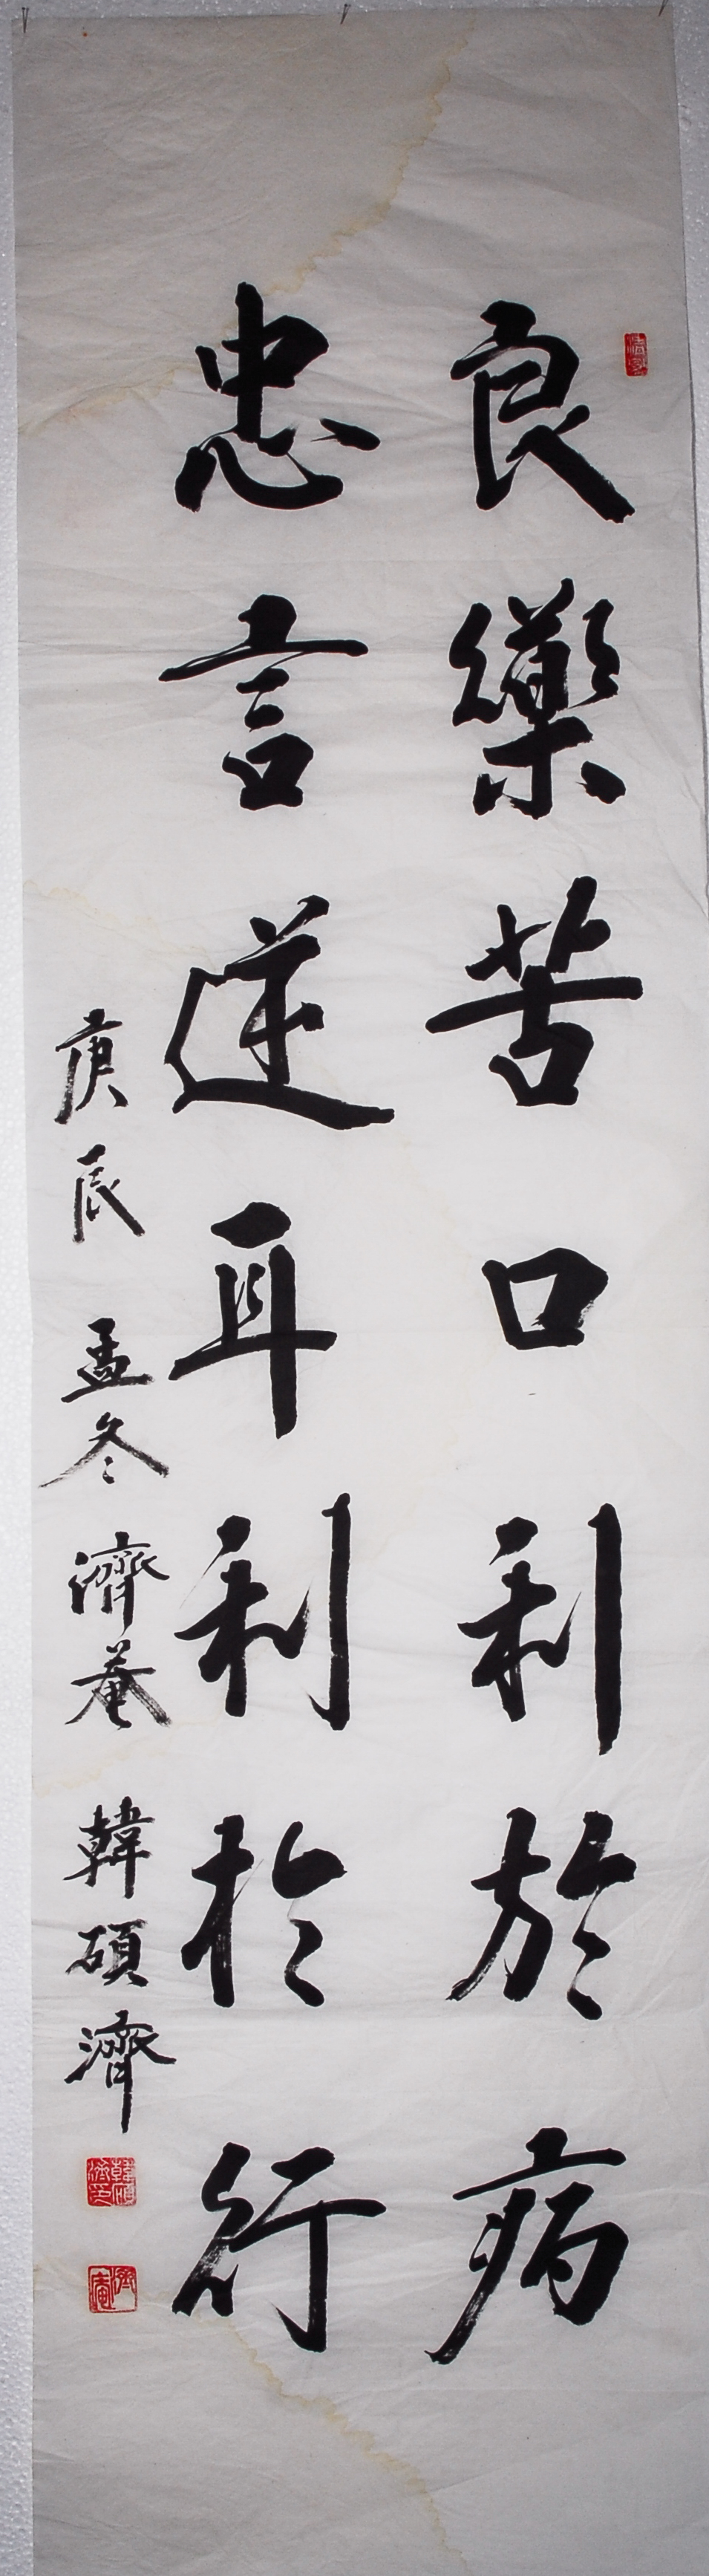 良藥苦口利於病
忠言逆耳利於行
庚辰孟冬濟菴韓碩濟